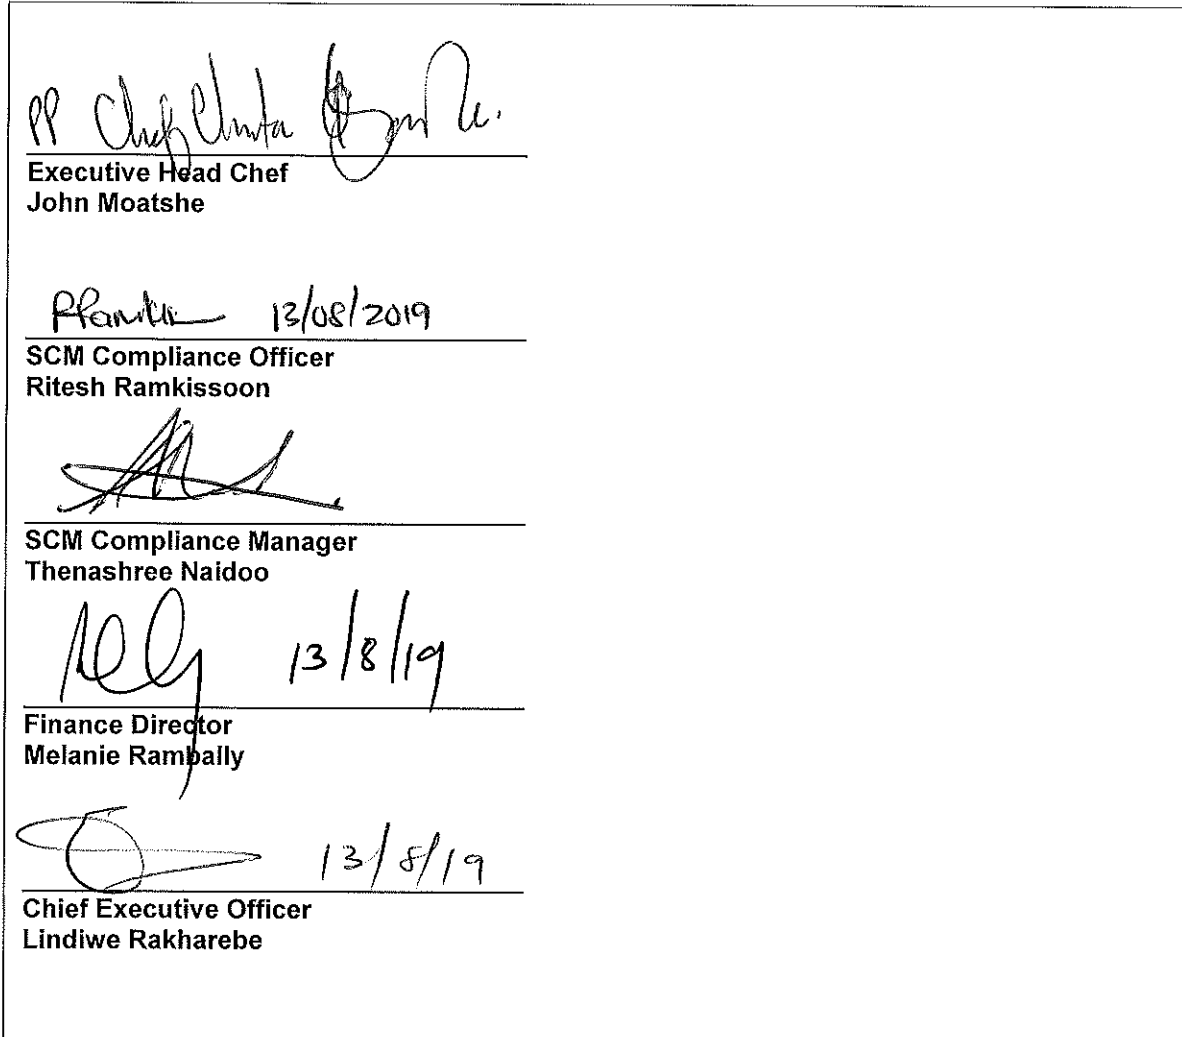 PP Chef
Executive Head Chef
John Moatshe
13/08/2019
SCM Compliance Officer
Ritesh Ramkissoon
SCM Compliance Manager
Thenashree Naidoo
13/8/19
Finance Director
Melanie Rambally
13/8/19
Chief Executive Officer
Lindiwe Rakharebe